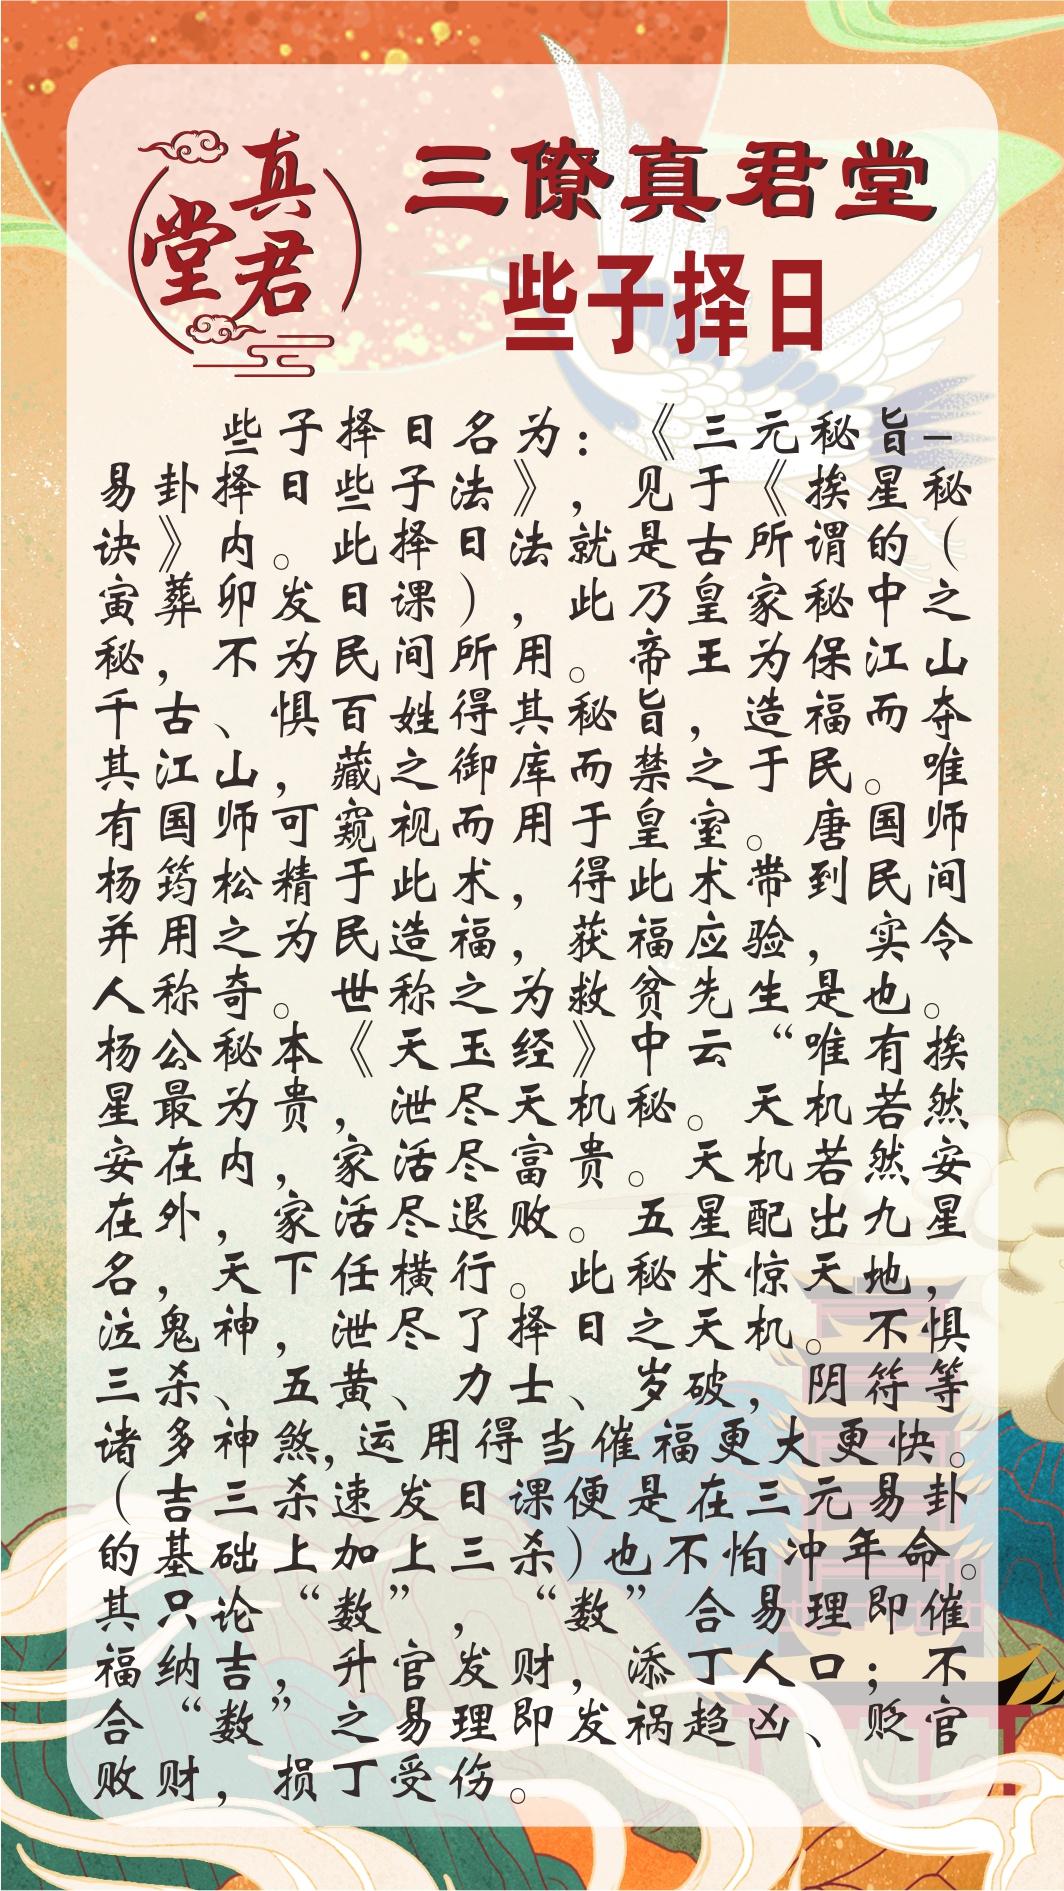 真君堂
三僚真君堂
些子择日
些子择日名为：《三元秘旨-
易卦择日些子法》，见于《挨星秘
诀》内。此择日法就是古所谓的（
寅葬卯发日课），此乃皇家秘中之
秘，不为民间所用。帝王为保江山
千古、惧百姓得其秘旨，造福而夺
其江山，藏之御库而禁之于民。唯
有国师可窥视而用于皇室。唐国师
杨筠松精于此术，得此术带到民间
并用之为民造福，获福应验，实令
人称奇。世称之为救贫先生是也。
杨公秘本《天玉经》中云“唯有挨
星最为贵，泄尽天机秘。天机若然
安在内，家活尽富贵。天机若然安
在外，家活尽退败。五星配出九星
名，天下任横行。此秘术惊天地，
泣鬼神，泄尽了择日之天机。不惧
三杀、五黄、力士、岁破，阴符等
诸多神煞,运用得当催福更大更快。
（吉三杀速发日课便是在三元易卦
的基础上加上三杀)也不怕冲年命。
其只论“数”，“数”合易理即催
福纳吉，升官发财，添丁人口；不
合“数”之易理即发祸趋凶、贬官
败财，损丁受伤。